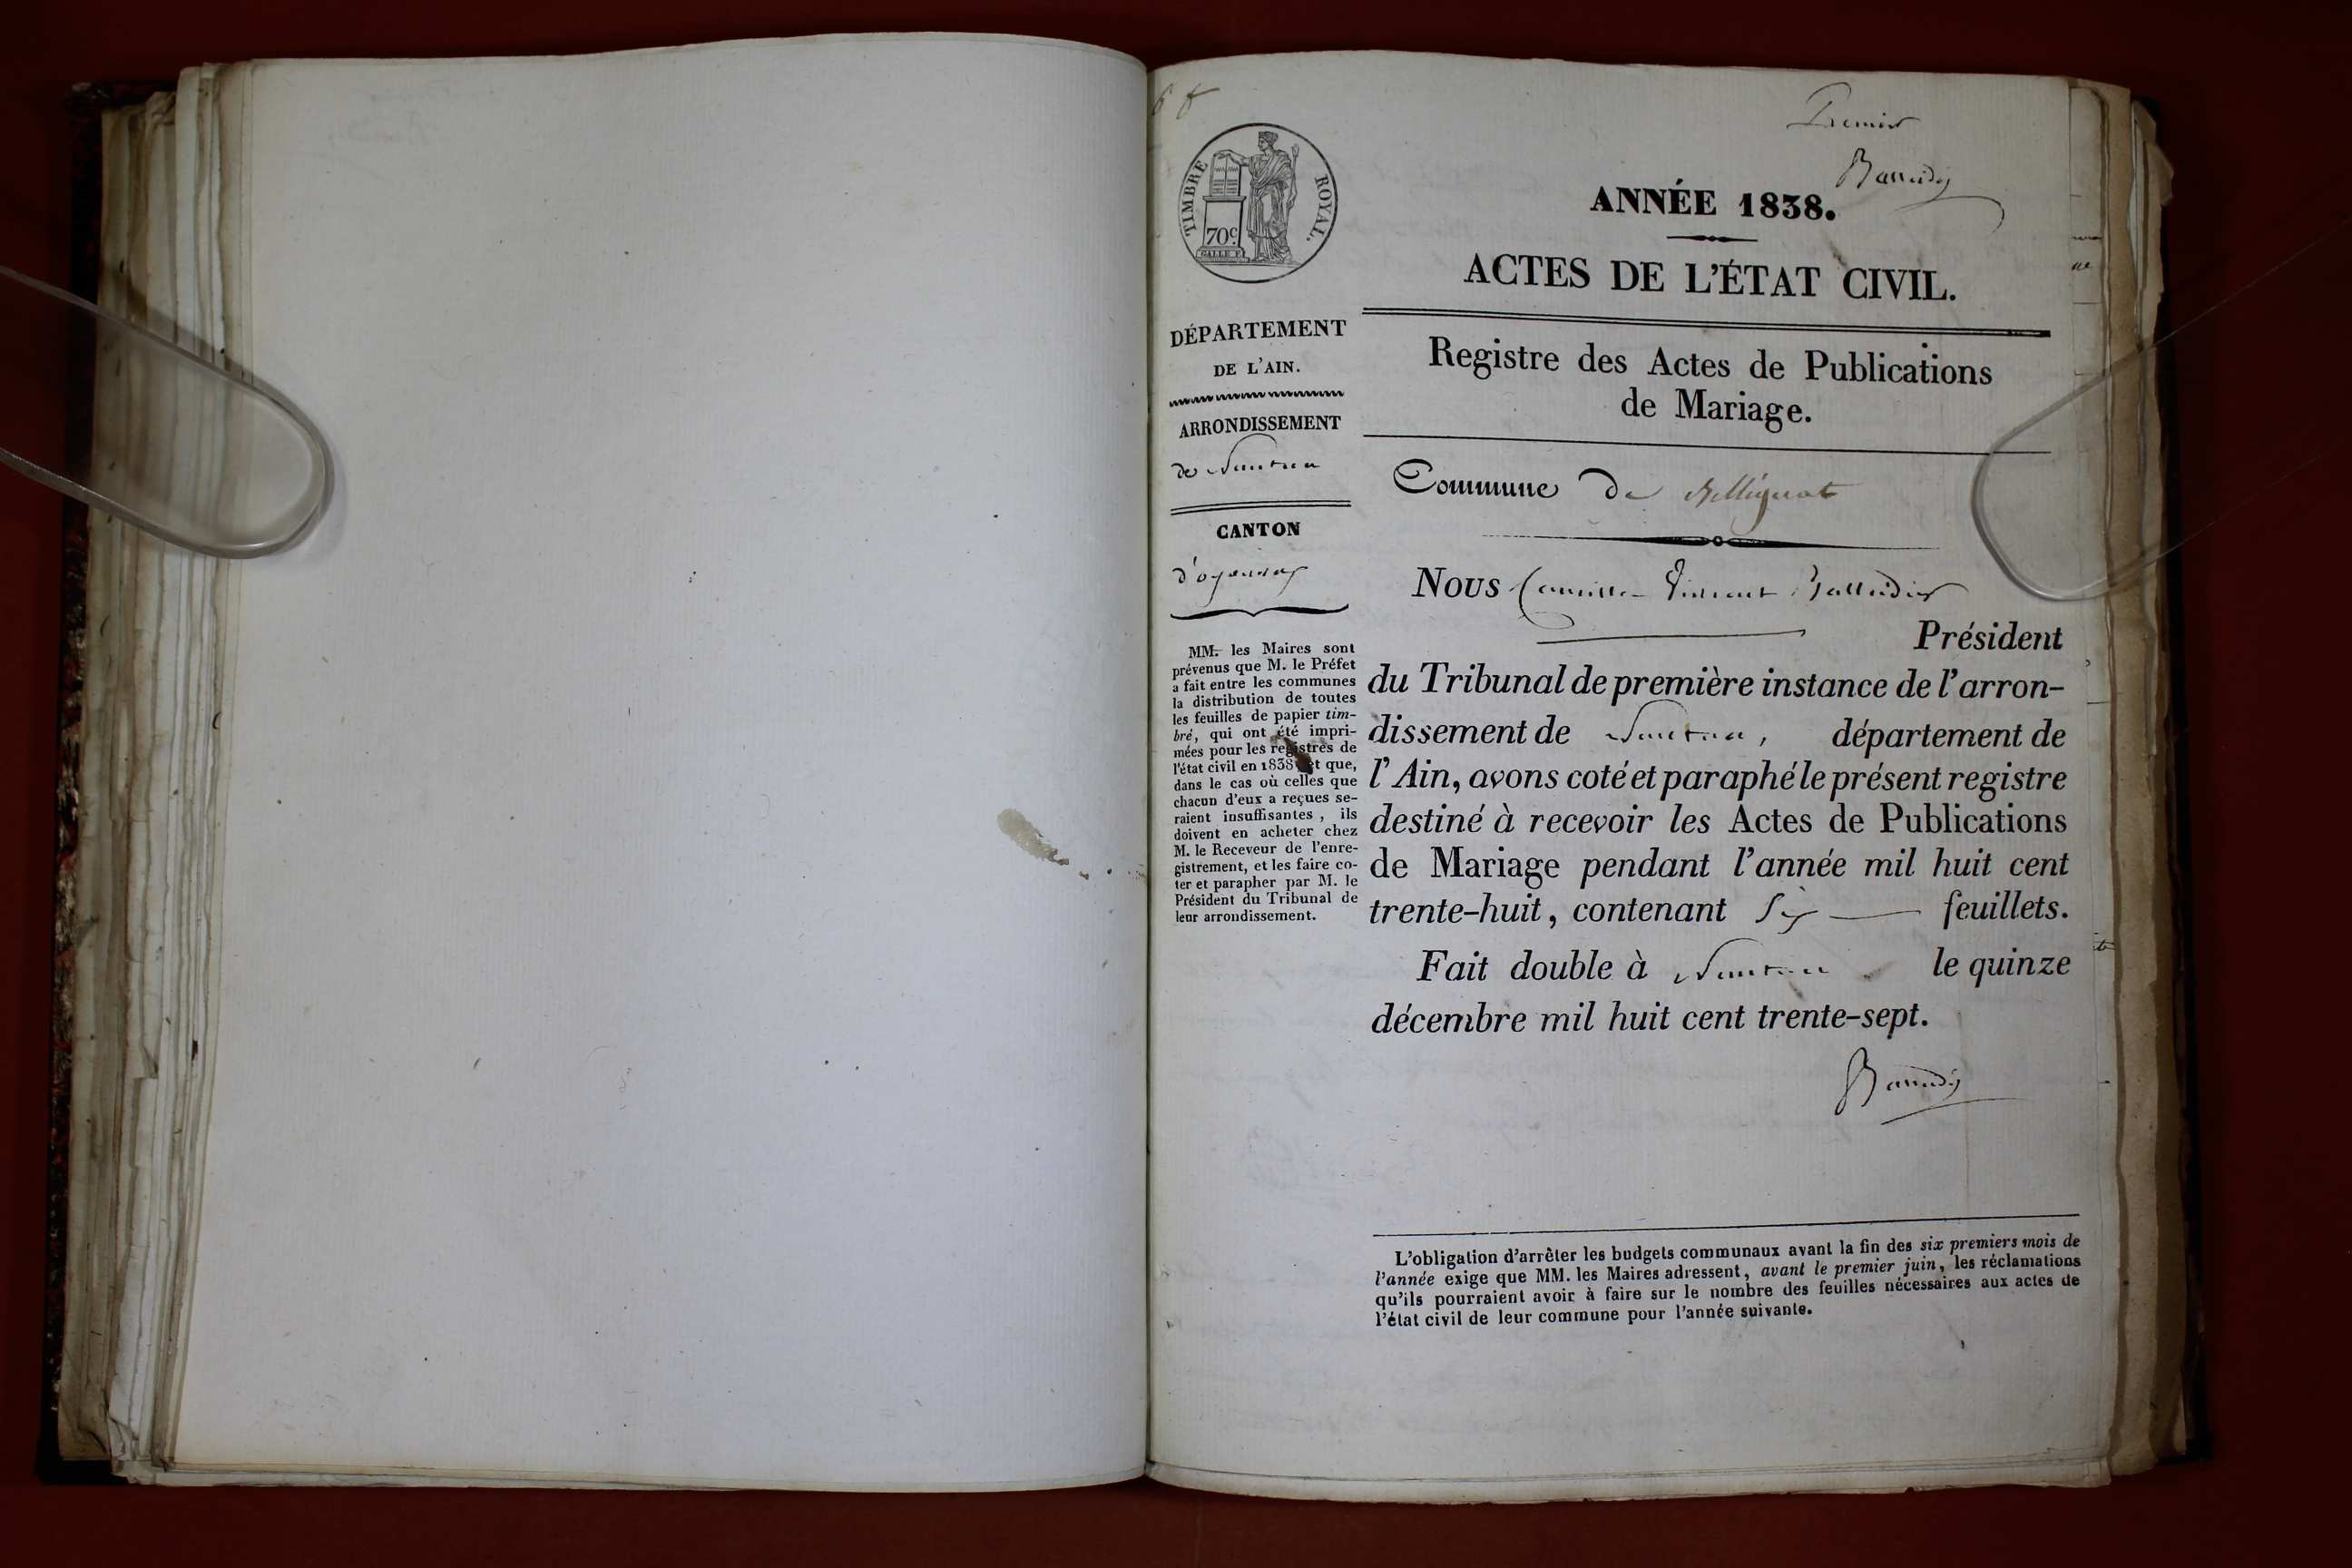 Premier
TIMBRE ROYAL.
70c
ANNÉE 1838.
ACTES DE L'ÉTAT CIVIL.
DÉPARTEMENT
DE L'AIN.
ARRONDISSEMENT
de Nantua
CANTON
d'oyonnax
MM. les Maires sont
prévenus que M. le Préfet
a fait entre les communes
la distribution de toutes
les feuilles de papier tim-
bré, qui ont été impri-
mées pour les registres de
l'état civil en 1838 et que,
dans le cas où celles que
chacun d'eux a reçues se-
raient insuffisantes, ils
doivent en acheter chez
M. le Receveur de l'enre-
gistrement, et les faire co-
ter et parapher par M. le
Président du Tribunal de
leur arrondissement.
Registre des Actes de Publications
de Mariage.
Commune de Bellignat
Nous Camille Vincent
Président
du Tribunal de première instance de l'arron-
dissement de Nantua, département de
l'Ain, avons coté et paraphé le présent registre
destiné à recevoir les Actes de Publications
de Mariage pendant l'année mil huit cent
trente-huit, contenant Six feuillets.
Fait double à Nantua le quinze
décembre mil huit cent trente-sept.
L'obligation d'arrêter les budgets communaux avant la fin des six premiers mois de
l'année exige que MM. les Maires adressent, avant le premier juin, les réclamations
qu'ils pourraient avoir à faire sur le nombre des feuilles nécessaires aux actes de
l'état civil de leur commune pour l'année suivante.